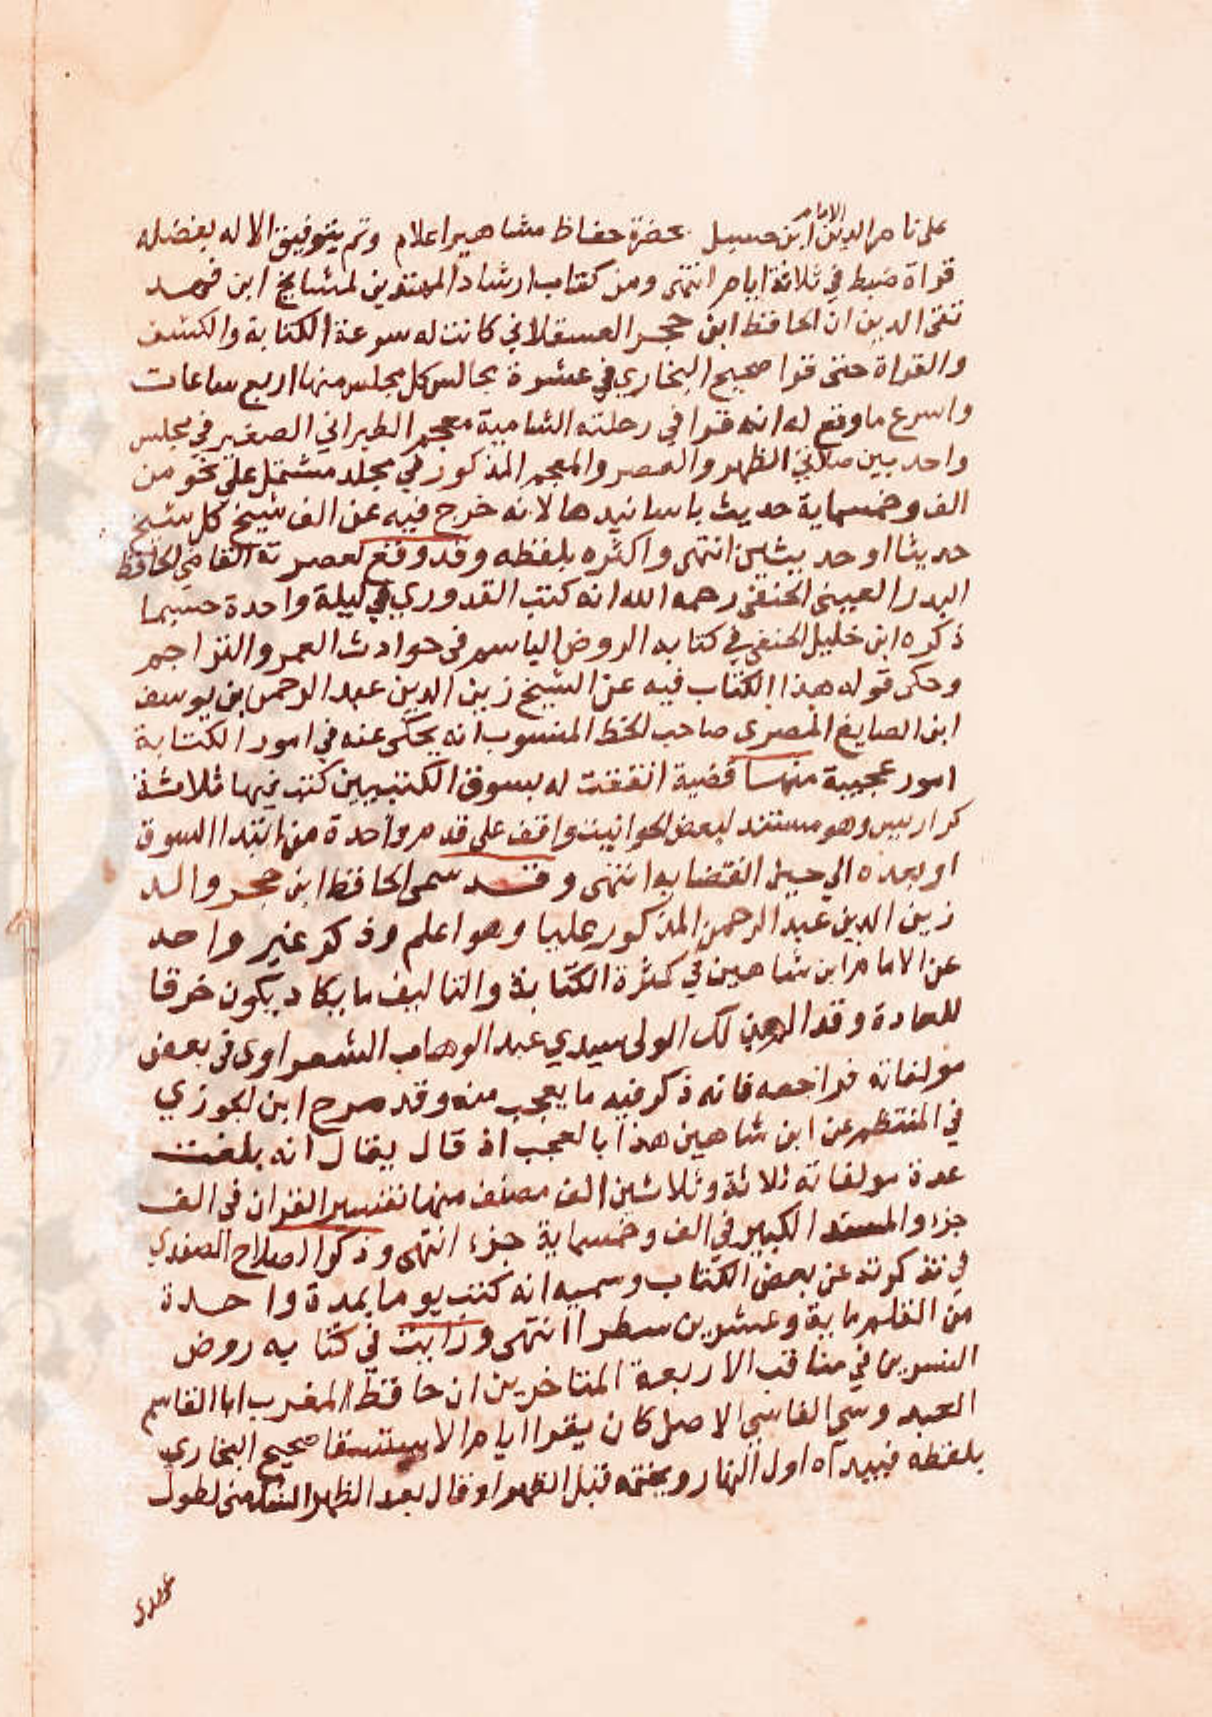 على ناصر الدين الامام ابن حسبل بحضرة حفاظ مشاهير اعلام وتم بتوفيق الاله بفضله
قراة ضبط في ثلاثة ايام انتهى ومن كتاب ارشاد المهتدين لمشايخ ابن فهد
تقى الدين ان الحافظ ابن حجر العسقلاني كانت له سرعة الكتابة والكشف
والقراة حتى قرا صحيح البخاري في عشرة مجالس كل مجلس منها اربع ساعات
واسرع ما وقع له انه قرا في رحلته الشامية معجم الطبراني الصغير في مجلس
واحد بين صلاتي الظهر والعصر والمعجم المذكور في مجلد مشتمل على نحو من
الف وخمسماية حديث باسانيدها لانه خرج فيه عن الف شيخ كل شيخ
حديثا او حديثين انتهى واكثره بلفظه وقد وقع لعصرته القاضي الحافظ
البدر العينى الحنفى رحمه الله انه كتب القدوري في ليلة واحدة حسبما
ذكره ابن خليل الحنفى في كتابه الروض الباسم فى حوادث العمر والتراجم
وحكى قوله هذا الكتاب فيه عن الشيخ زين الدين عبد الرحمن بن يوسف
ابن الصايغ المصرى صاحب الخط المنسوب انه يحكى عنه في امور الكتابة
امور عجيبة منها قضية اتفقت له بسوق الكتبيين كتب فيها ثلاثة
كراريس وهو مستند لبعض الحوانيت واقف على قدم واحدة من ابتدا السوق
او بعده الى حين انقضايه انتهى وقد سمى الحافظ ابن حجر والد
زين الدين عبد الرحمن المذكور عليا وهو اعلم وذكر غير واحد
عن الامام ابن شاهين في كثرة الكتابة والتاليف ما يكاد يكون خرقا
للعادة وقد لك الولى سيدي عبد الوهاب الشعراوى فى بعض
مولفاته فراجعه فانه ذكر فيه ما يعجب منه وقد صرح ابن الجوزي
في المنتظم عن ابن شاهين هذا بالعجب اذ قال يقال انه بلغت
عدة مولفاته ثلاثة وثلاثين الف مصنف منها تفسير القران في الف
جزء والمسند الكبير في الف وخمسماية جزء انتهى وذكر الصلاح الصفدي
في تذكرته عن بعض الكتاب وسميه انه كتب يوما بمدة واحدة
من القلم ماية وعشرين سطرا انتهى ورايت فى كتابه روض
النسرين في مناقب الاربعة المتاخرين ان حافظ المغرب ابا القاسم
العبدوسي الفاسي الاصل كان يقرا ايام الاستسقا صحيح البخاري
بلفظه فيبداه اول النهار ويختمه قبل الظهر او قال بعد الظهر لطول